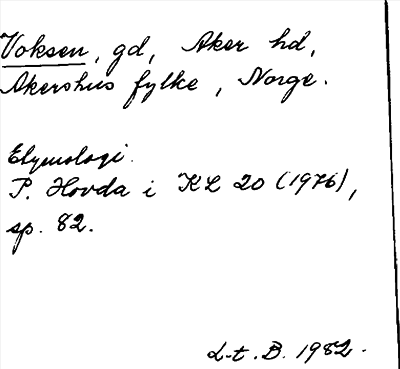 Voksen, gd, Aker hd,
Akershus fylke, Norge.
Etymologi.
P. Hovda i KL 20 (1976),
sp. 82.
L-t. B. 1982.